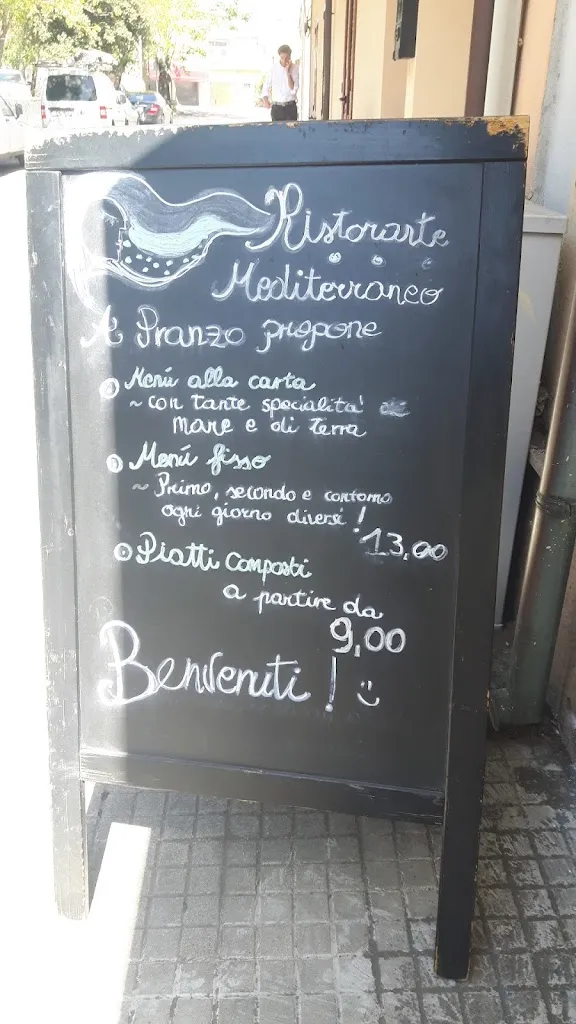 Ristorante
Mediterraneo
A Pranzo propone
Menú alla carta
~ con tante specialita' di
mare e di terra
Menú fisso
~ Primo, secondo e contorno
ogni giorno diversi!
13,00
Piatti Composti
a partire da
9,00
Benvenuti! :)